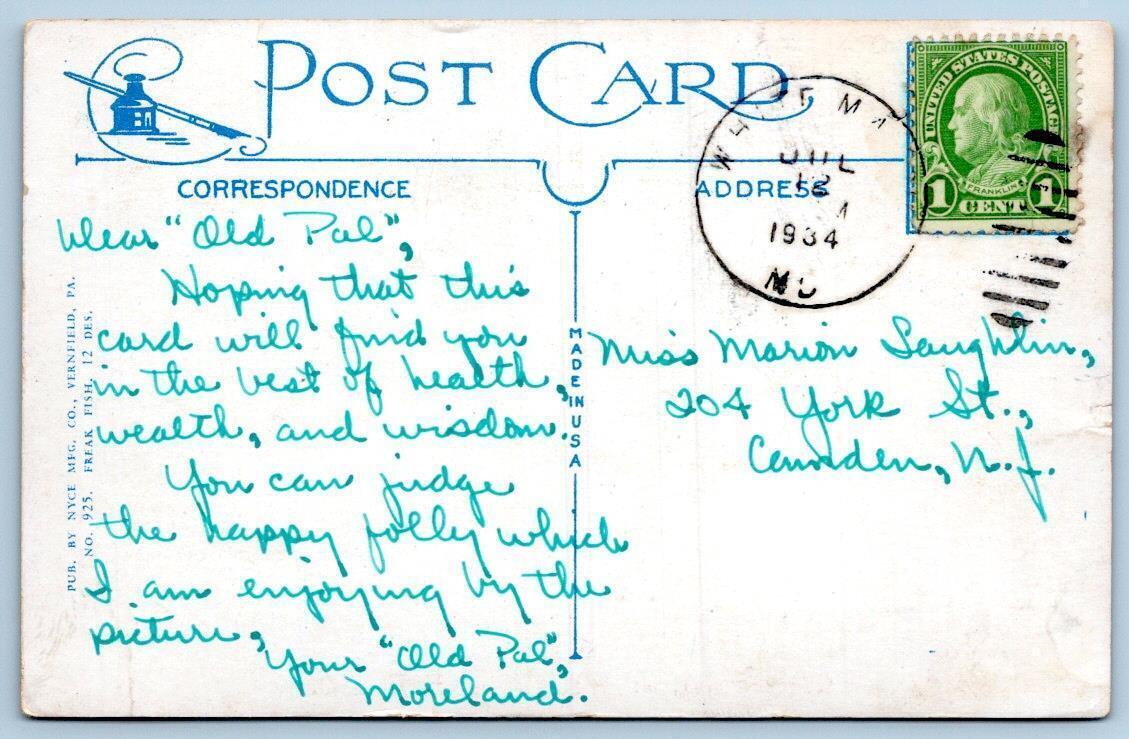 POST CARD
CORRESPONDENCE
ADDRESS
UNITED STATES POSTAGE
FRANKLIN
1 CENT 1
JUL
12
1934
MD
Dear "Old Pal",
Hoping that this
card will find you
in the best of health,
wealth, and wisdom.
You can judge
the happy folly which
I am enjoying by the
picture,
Your "Old Pal",
Moreland.
MADE IN USA
Miss Marion Laughlin,
204 York St.,
Camden, N.J.
PUB. BY NYCE MFG. CO., VERNFIELD, PA.
NO. 925. FREAK FISH. 12 DES.